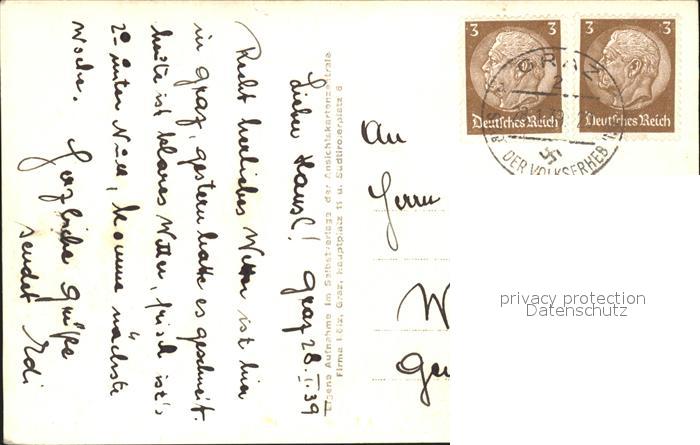 Lieber Hansl! Graz 28.I.39
Recht herrliches Wetter ist hier
in Graz, gestern hatte es geschneit.
heute ist klares Wetter, frisch ist's
2° unter Null, komme nächste
Woche. Herzliche Grüße
sendet Edi
Eigene Aufnahme im Selbstverlage der Ansichtskartenzentrale
Firma Graz, Hauptplatz 11 u. Südtirolerplatz 8
An
Herrn
W
3 3
Deutsches Reich
3 3
Deutsches Reich
GRAZ
2
DER VOLKSERHEB
privacy protection
Datenschutz